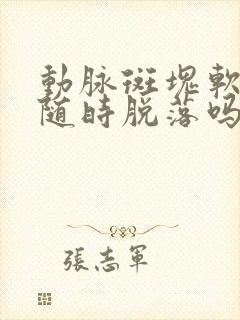 動脉斑塊軟
随時脱落吗
張志軍